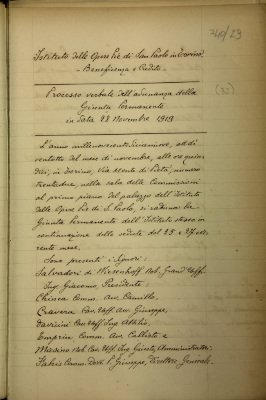 340/23
(38)
Istituto delle Opere Pie di San Paolo in Torino
- Beneficenza e Credito -
Processo verbale dell'adunanza della
Giunta Permanente
in data 28 Novembre 1919
L'anno millenovecentodiciannove, addì
ventotto del mese di novembre, alle ore quindi
ci, in Torino, Via Monte di Pietà, numero
trentadue, nella sala delle Commissioni
al primo piano del palazzo dell'Istituto
delle Opere Pie di S. Paolo, si radunò la
Giunta Permanente dell'Istituto stesso in
continuazione della seduta del 25 e 27 cor
rente mese.
Sono presenti i Signori:
Salvadori di Wiesenhoff Nob. Grand'Uff.
Ing. Giacomo, Presidente;
Chiesa Comm. Avv. Camillo,
Cravera Cav. Uff. Avv. Giuseppe,
Cav. Uff. Ing. Attilio,
Comm. Avv. Callisto e
Masino Nob. Cav. Uff. Ing. Amministratori;
Comm. Dott. Giuseppe, Direttore Generale.